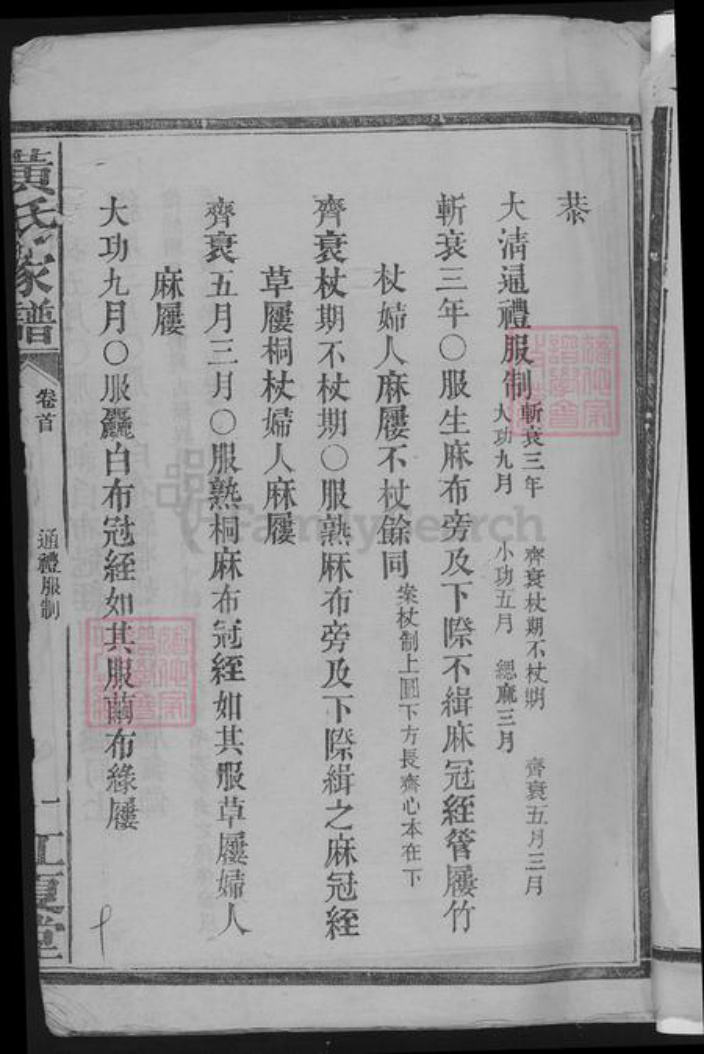 恭
大清通禮服制
斬衰三年 齊衰杖期不杖期 齊衰五月三月
大功九月 小功五月 緦麻三月
斬衰三年〇服生麻布旁及下際不緝麻冠絰菅屨竹
杖婦人麻屨不杖餘同
案杖制上圓下方長齊心本在下
齊衰杖期不杖期〇服熟麻布旁及下際緝之麻冠絰
草屨桐杖婦人麻屨
齊衰五月三月〇服熟桐麻布冠絰如其服草屨婦人
麻屨
大功九月〇服麤白布冠絰如其服繭布緣屨
黃氏家譜
卷首
通禮服制
一
江夏堂
FamilySearch